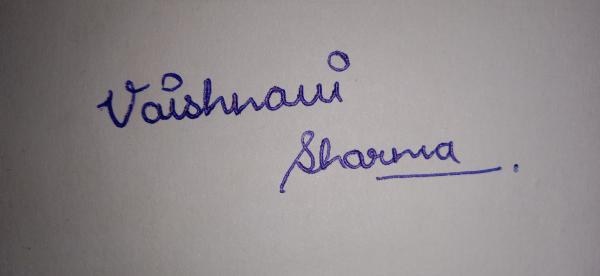 Vaishnavi
Sharma.